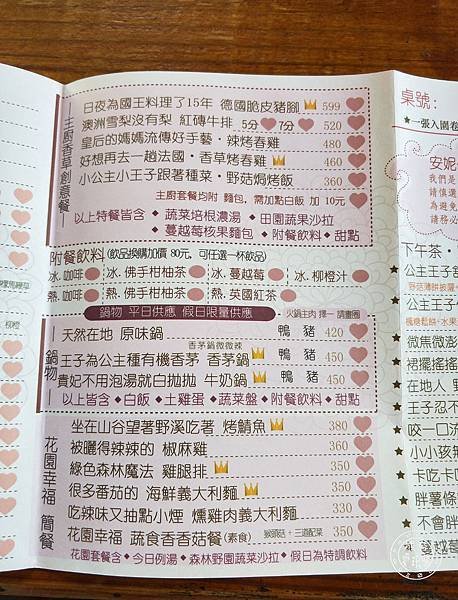 主廚香草創意餐
日夜為國王料理了15年 德國脆皮豬腳 599
澳洲雪梨沒有梨 紅磚牛排 5分 7分 520
皇后的媽媽流傳好手藝・辣烤春雞 480
好想再去一趟法國・香草烤春雞 460
小公主小王子跟著種菜・野菇焗烤飯 360
主廚套餐均附 麵包,需加點白飯 加 10元
以上特餐皆含 ◆ 蔬菜培根濃湯 ◆ 田園蔬果沙拉
◆ 蔓越莓核果麵包 ◆ 附餐飲料 ◆ 甜點
附餐飲料 (飲品換購加價 80元, 可任選一杯飲品)
冰. 咖啡 冰. 佛手柑柚茶 冰. 蔓越莓 冰. 柳橙汁
熱. 咖啡 熱. 佛手柑柚茶 熱. 英國紅茶
鍋物 平日供應 假日限量供應
火鍋主肉 擇一 請畫圈
鍋物
天然在地 原味鍋 鴨 豬 420
香茅鍋微微辣
王子為公主種有機香茅 香茅鍋 鴨 豬 450
貴妃不用泡湯就白拋拋 牛奶鍋 鴨 豬 450
以上皆含 ◆ 白飯 ◆ 土雞蛋 ◆ 蔬菜盤 ◆ 附餐飲料 ◆ 甜點
花園幸福 簡餐
坐在山谷望著野溪吃著 烤鯖魚 380
被曬得辣辣的 椒麻雞 360
綠色森林魔法 雞腿排 350
很多番茄的 海鮮義大利麵 350
吃辣味又抽點小煙 燻雞肉義大利麵 330
花園幸福 蔬食香香菇餐(素食) 猴頭菇+三道配菜 350
花園套餐含 ◆ 今日例湯 ◆ 森林野園蔬菜沙拉 ◆ 假日為特調飲料
柳橙
桌號:
★一張入園卷
安妮
我們是
請慎選
為避免
請務必
下午茶・
★ 公主王子
野菇薄餅披薩
★ 公主王子
楓糖鬆餅・水果
★ 微焦微澎
★ 裙擺搖搖
★ 在地人 野
★ 王子忍不
★ 咬一口流
★ 小小孩
★ 卡吃卡
★ 胖薯條
★ 不會胖
★ 蔓越莓